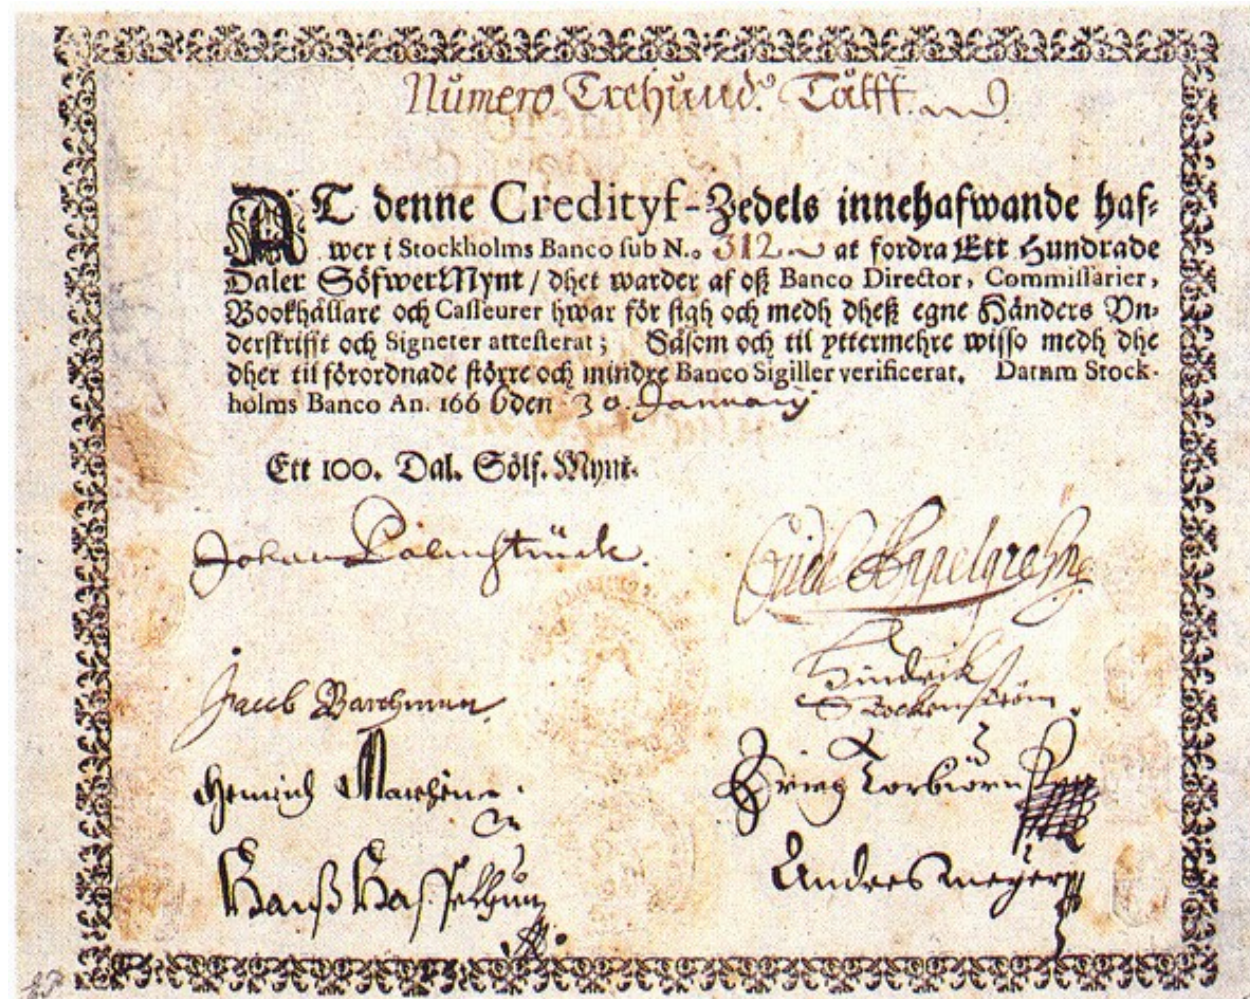 Numero Trehund. Tålff.
AT denne Credityf-Zedels innehafwande haf-
wer i Stockholms Banco sub N.o 312 at fordra Ett Hundrade
Daler SöfwerMynt / dhet warder af oß Banco Director, Commissarier,
Bookhållare och Casseurer hwar för sigh och medh dheß egne Händers Vn-
derskrifft och Signeter attesterat; Såsom och til yttermehre wisso medh dhe
dher til förordnade större och mindre Banco Sigiller verificerat. Datum Stock-
holms Banco An. 1666 den 30. January
Ett 100. Dal. Sölf. Mynt.
Johan Palmstruck.
Appelgrehn
Jacob
Hindrik
Stockenström.
Hemrich
Torbiörn
Hanß
Anders meyer